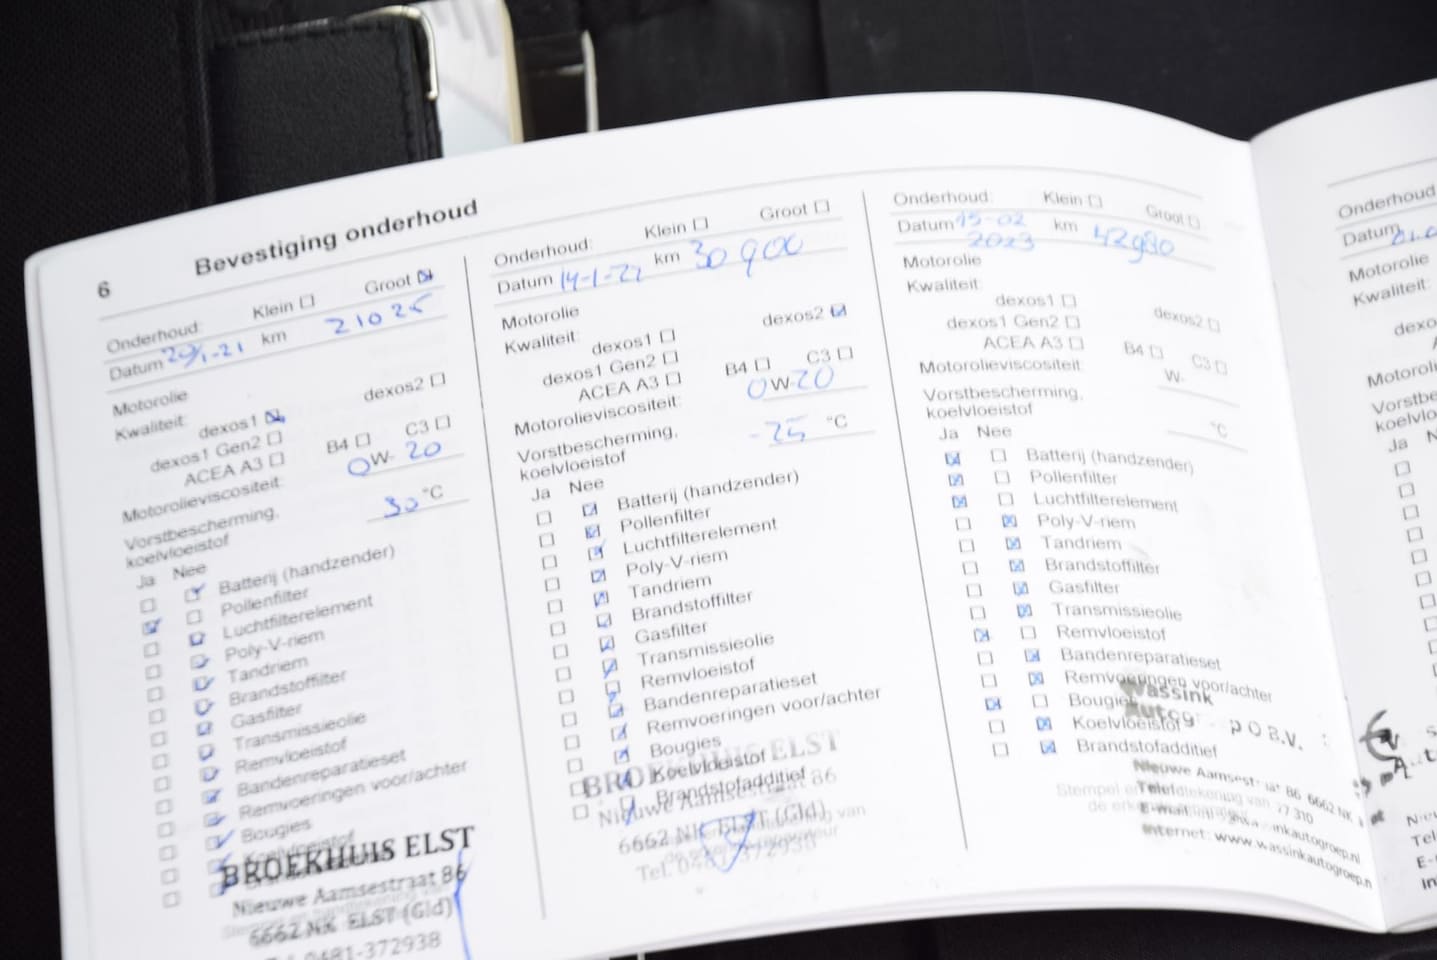 6
Bevestiging onderhoud
Onderhoud: Klein Groot
Datum km 21025
Motorolie
Kwaliteit: dexos1 dexos2
dexos1 Gen2
ACEA A3 B4 C3
Motorolieviscositeit: 0W-20
Vorstbescherming, 30 °C
koelvloeistof
Ja Nee
Batterij (handzender)
Pollenfilter
Luchtfilterelement
Poly-V-riem
Tandriem
Brandstoffilter
Gasfilter
Transmissieolie
Remvloeistof
Bandenreparatieset
Remvoeringen voor/achter
Bougies
Koelvloeistof
BROEKHUIS ELST
Nieuwe Aamsestraat 86
6662 NK ELST (Gld)
0481-372938
Onderhoud: Klein Groot
Datum 14-1-22 km 30900
Motorolie
Kwaliteit: dexos1 dexos2
dexos1 Gen2
ACEA A3 B4 C3
Motorolieviscositeit: 0W-20
Vorstbescherming, -25 °C
koelvloeistof
Ja Nee
Batterij (handzender)
Pollenfilter
Luchtfilterelement
Poly-V-riem
Tandriem
Brandstoffilter
Gasfilter
Transmissieolie
Remvloeistof
Bandenreparatieset
Remvoeringen voor/achter
Bougies
Koelvloeistof
Brandstofadditief
BROEKHUIS ELST
Nieuwe Aamsestraat 86
6662 NK ELST (Gld)
Tel. 0481-372938
Onderhoud: Klein Groot
Datum 15-02 km 42980
2023
Motorolie
Kwaliteit:
dexos1 dexos2
dexos1 Gen2
ACEA A3 B4 C3
Motorolieviscositeit: W-
Vorstbescherming,
koelvloeistof °C
Ja Nee
Batterij (handzender)
Pollenfilter
Luchtfilterelement
Poly-V-riem
Tandriem
Brandstoffilter
Gasfilter
Transmissieolie
Remvloeistof
Bandenreparatieset
Remvoeringen voor/achter
Bougies
Koelvloeistof
Brandstofadditief
Wassink
B.V.
Nieuwe Aamsestraat 86 6662 NK
Internet: www.wassinkautogroep.n
Onderhoud
Datum
Motorolie
Kwaliteit:
dexo
Ja